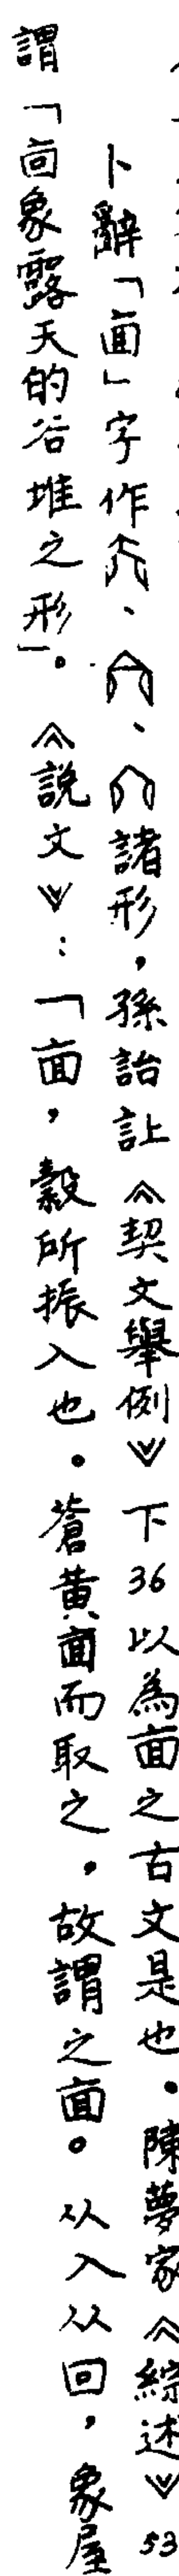 卜辭「㐭」字作、、諸形，孫詒讓《契文舉例》下36以為㐭之古文是也。陳夢家《綜述》53
謂「㐭象露天的谷堆之形」。《說文》：「㐭，穀所振入也。蒼黃㐭而取之，故謂之㐭。从入从回，象屋